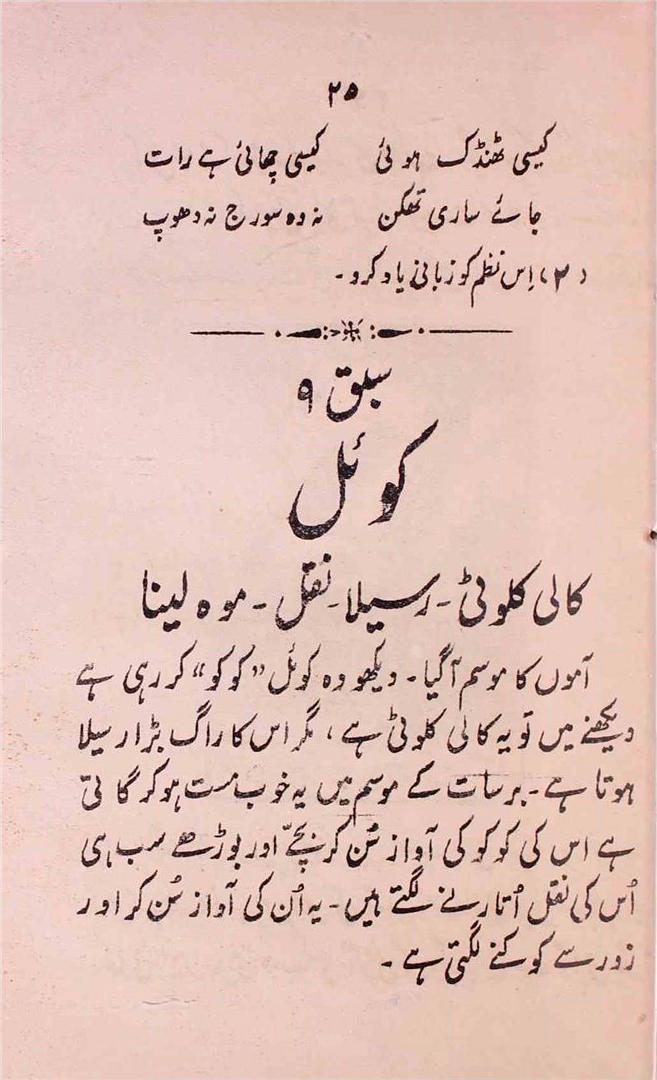 ۲۵
کیسی ٹھنڈک ہوئی کیسی چھائی ہے رات
جائے ساری تھکن نہ وہ سورج نہ دھوپ
(۲) اِس نظم کو زبانی یاد کرو۔
سبق ۹
کوئل
کالی کلوٹی۔ رسیلا۔ نقل۔ موہ لینا
آموں کا موسم آگیا۔ دیکھو وہ کوئل "کوکو" کر رہی ہے
دیکھنے میں تو یہ کالی کلوٹی ہے، مگر اس کا راگ بڑا رسیلا
ہوتا ہے۔ برسات کے موسم میں یہ خوب مست ہو کر گاتی
ہے اس کی کوکو کی آواز سُن کر بچّے اور بوڑھے سب ہی
اُس کی نقل اُتارنے لگتے ہیں۔ یہ اُن کی آواز سُن کر اور
زور سے کوکنے لگتی ہے۔